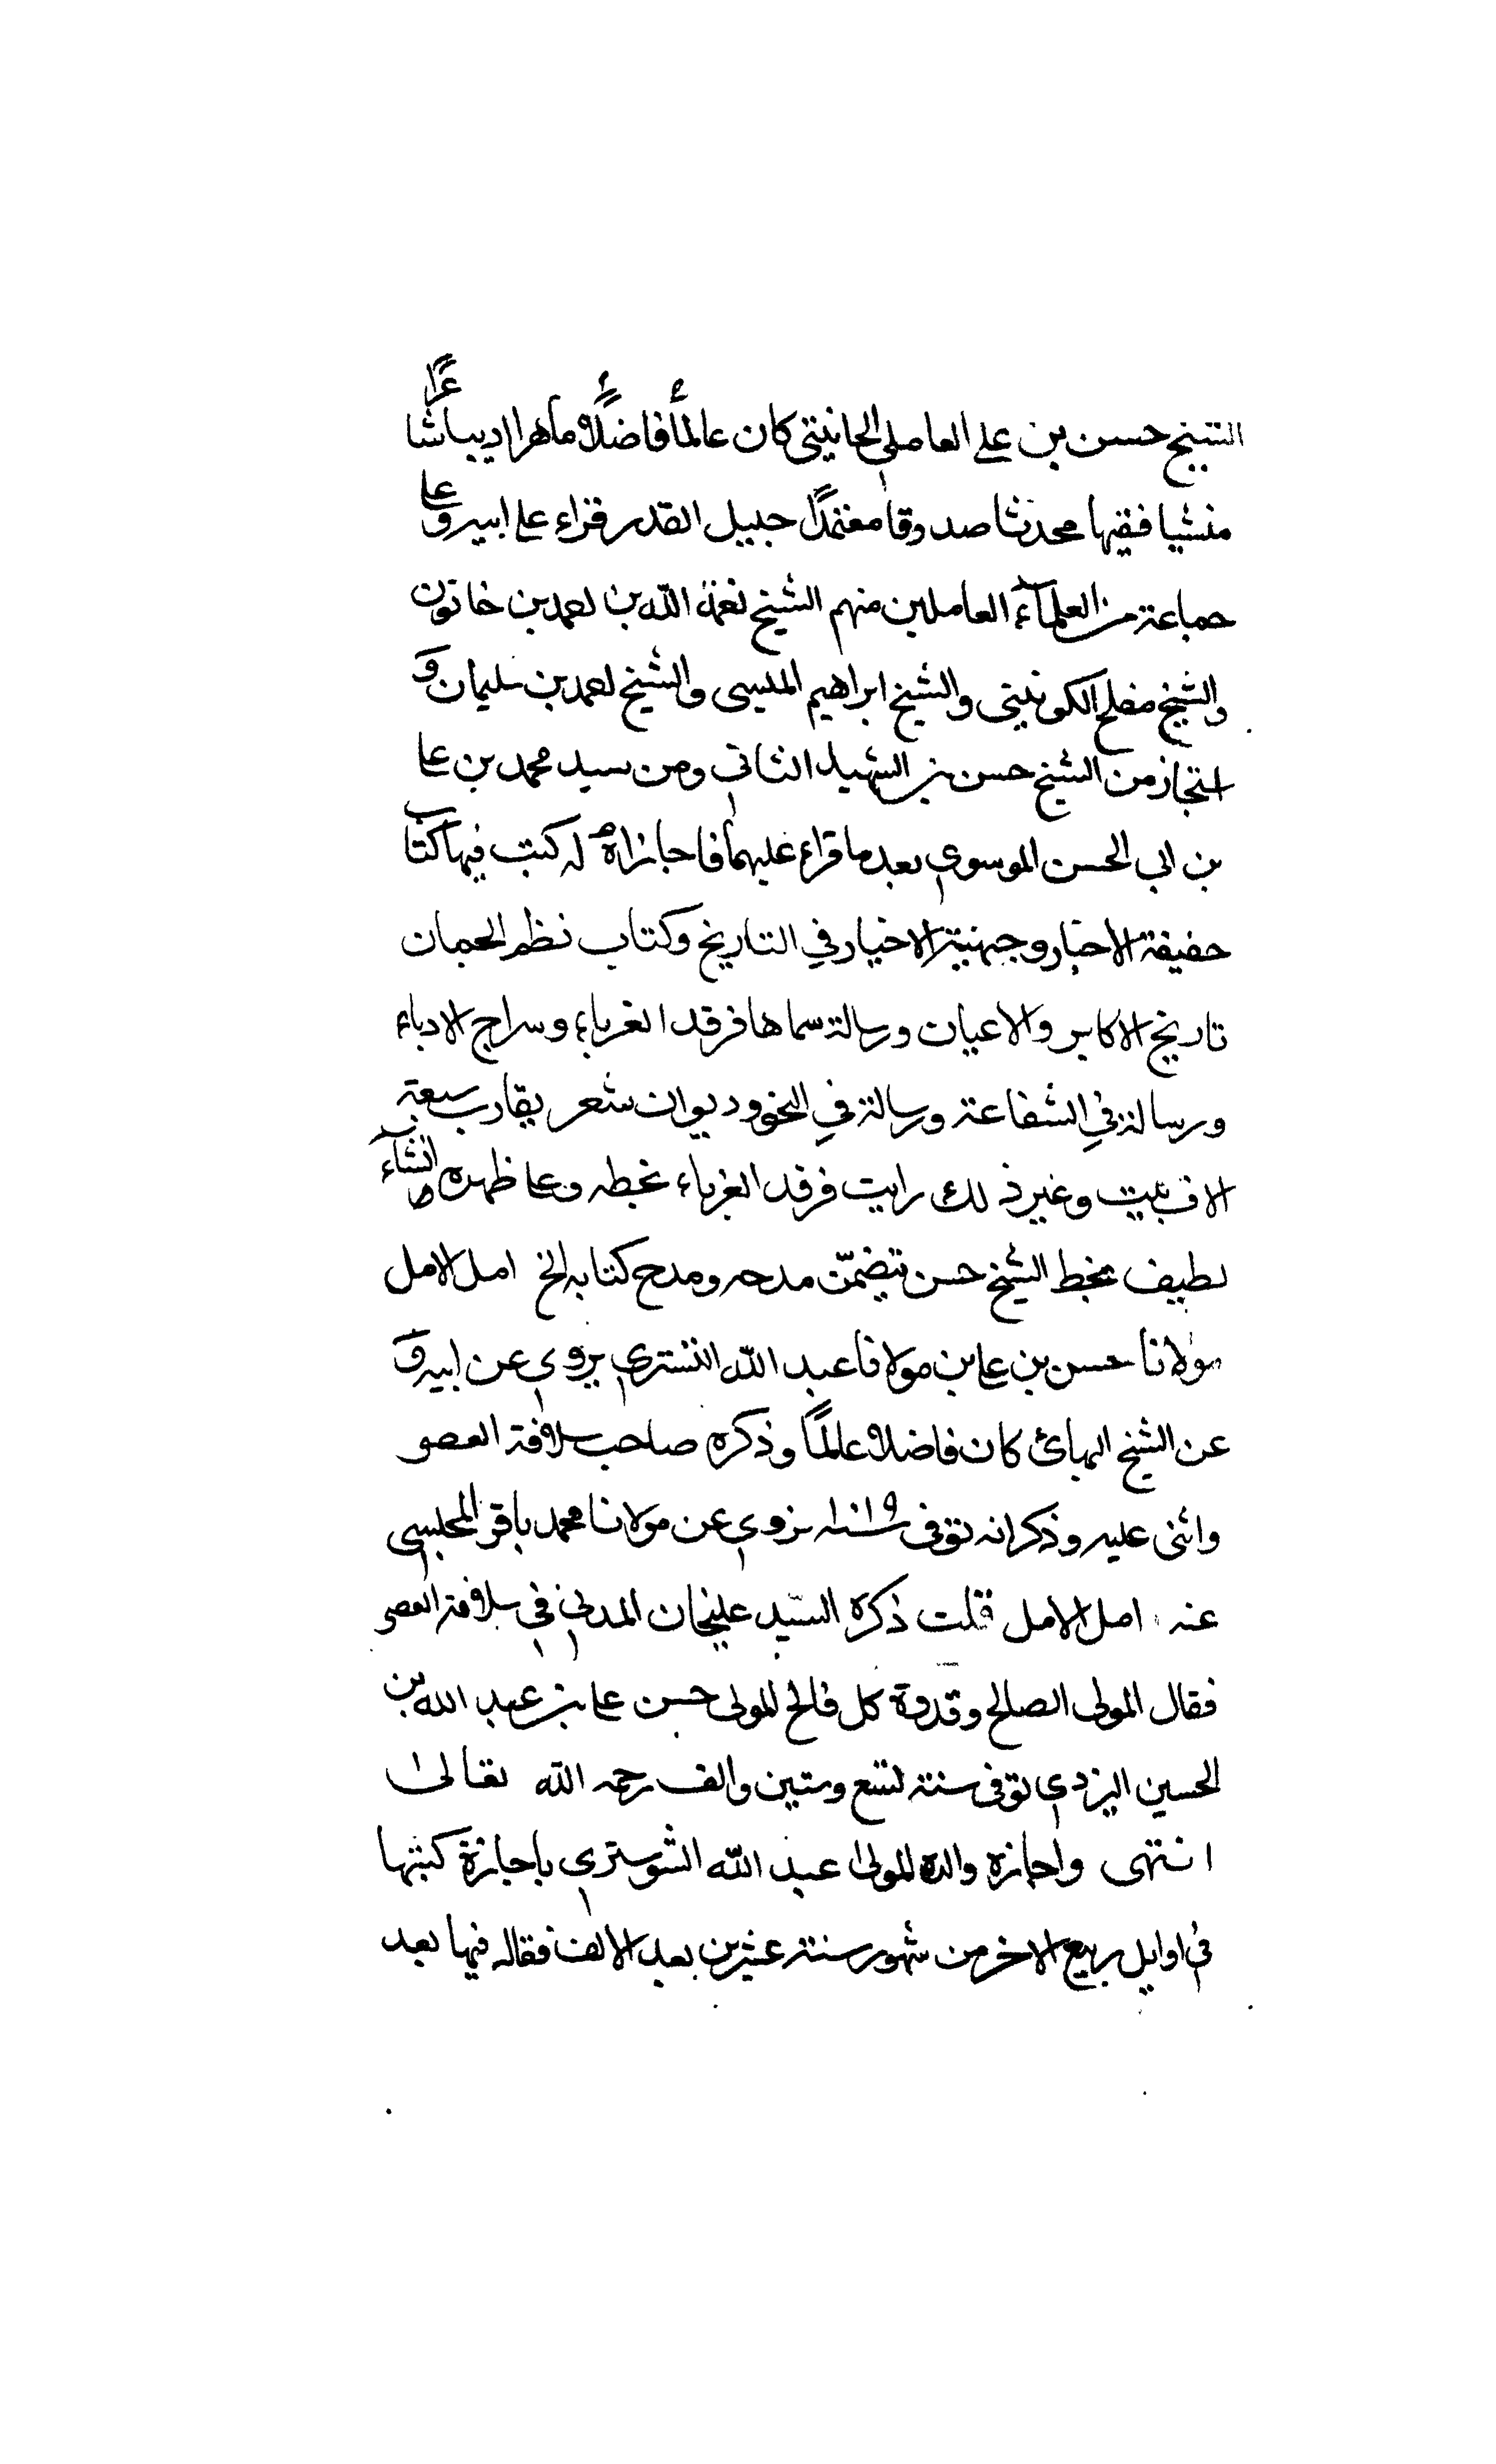 الشيخ حسن بن علي العاملي الحانيني كان عالماً فاضلاً ماهرا اديبا شاعراً
منشيا فقيها محدثا صدوقا معتمداً جليل القدر قراء على ابيه وعلى
جماعة من العلماء العاملين منهم الشيخ نعمة الله بن احمد بن خاتون
والشيخ مفلح الكونيني والشيخ ابراهيم الميسي والشيخ احمد بن سليمان و
استجاز من الشيخ حسن بن الشهيد الثاني ومن سيد محمد بن علي
بن ابي الحسن الموسوي بعد ما قراء عليهما فاجازاه له كتب فيها كتاب
حقيقة الاخبار وجهينة الاخبار في التاريخ وكتاب نظم الجمان
تاريخ الاكابر والاعيان ورسالة سماها فرقد الغرباء وسراج الادباء
ورسالة في الشفاعة ورسالة في النحو وديوان شعر يقارب سبعة
الاف بيت وغير ذلك رايت فرقد الغرباء بخطه وعلى ظهره انشاء
لطيف بخط الشيخ حسن يتضمّن مدحه ومدح كتابه الخ امل الامل
مولانا حسن بن علي بن مولانا عبد الله التستري يروي عن ابيه و
عن الشيخ البهائي كان فاضلا عالماً وذكره صاحب سلافة العصر
واثنى عليه وذكر انه توفى سنة ١٠٦٩ نروي عن مولانا محمد باقر المجلسي
عنه امل الامل قلت ذكره السيد عليخان المدني في سلافة العصر
فقال المولى الصالح وقدوة كل فالح المولى حسن علي بن عبد الله بن
الحسين اليزدي توفى سنة تسع وستين والف رحمه الله تعالى
انتهى واجازه والده المولى عبد الله الشوستري باجازة كتبها
في اوايل ربيع الاخر من شهور سنة عشرين بعد الالف فقاله فيها بعد